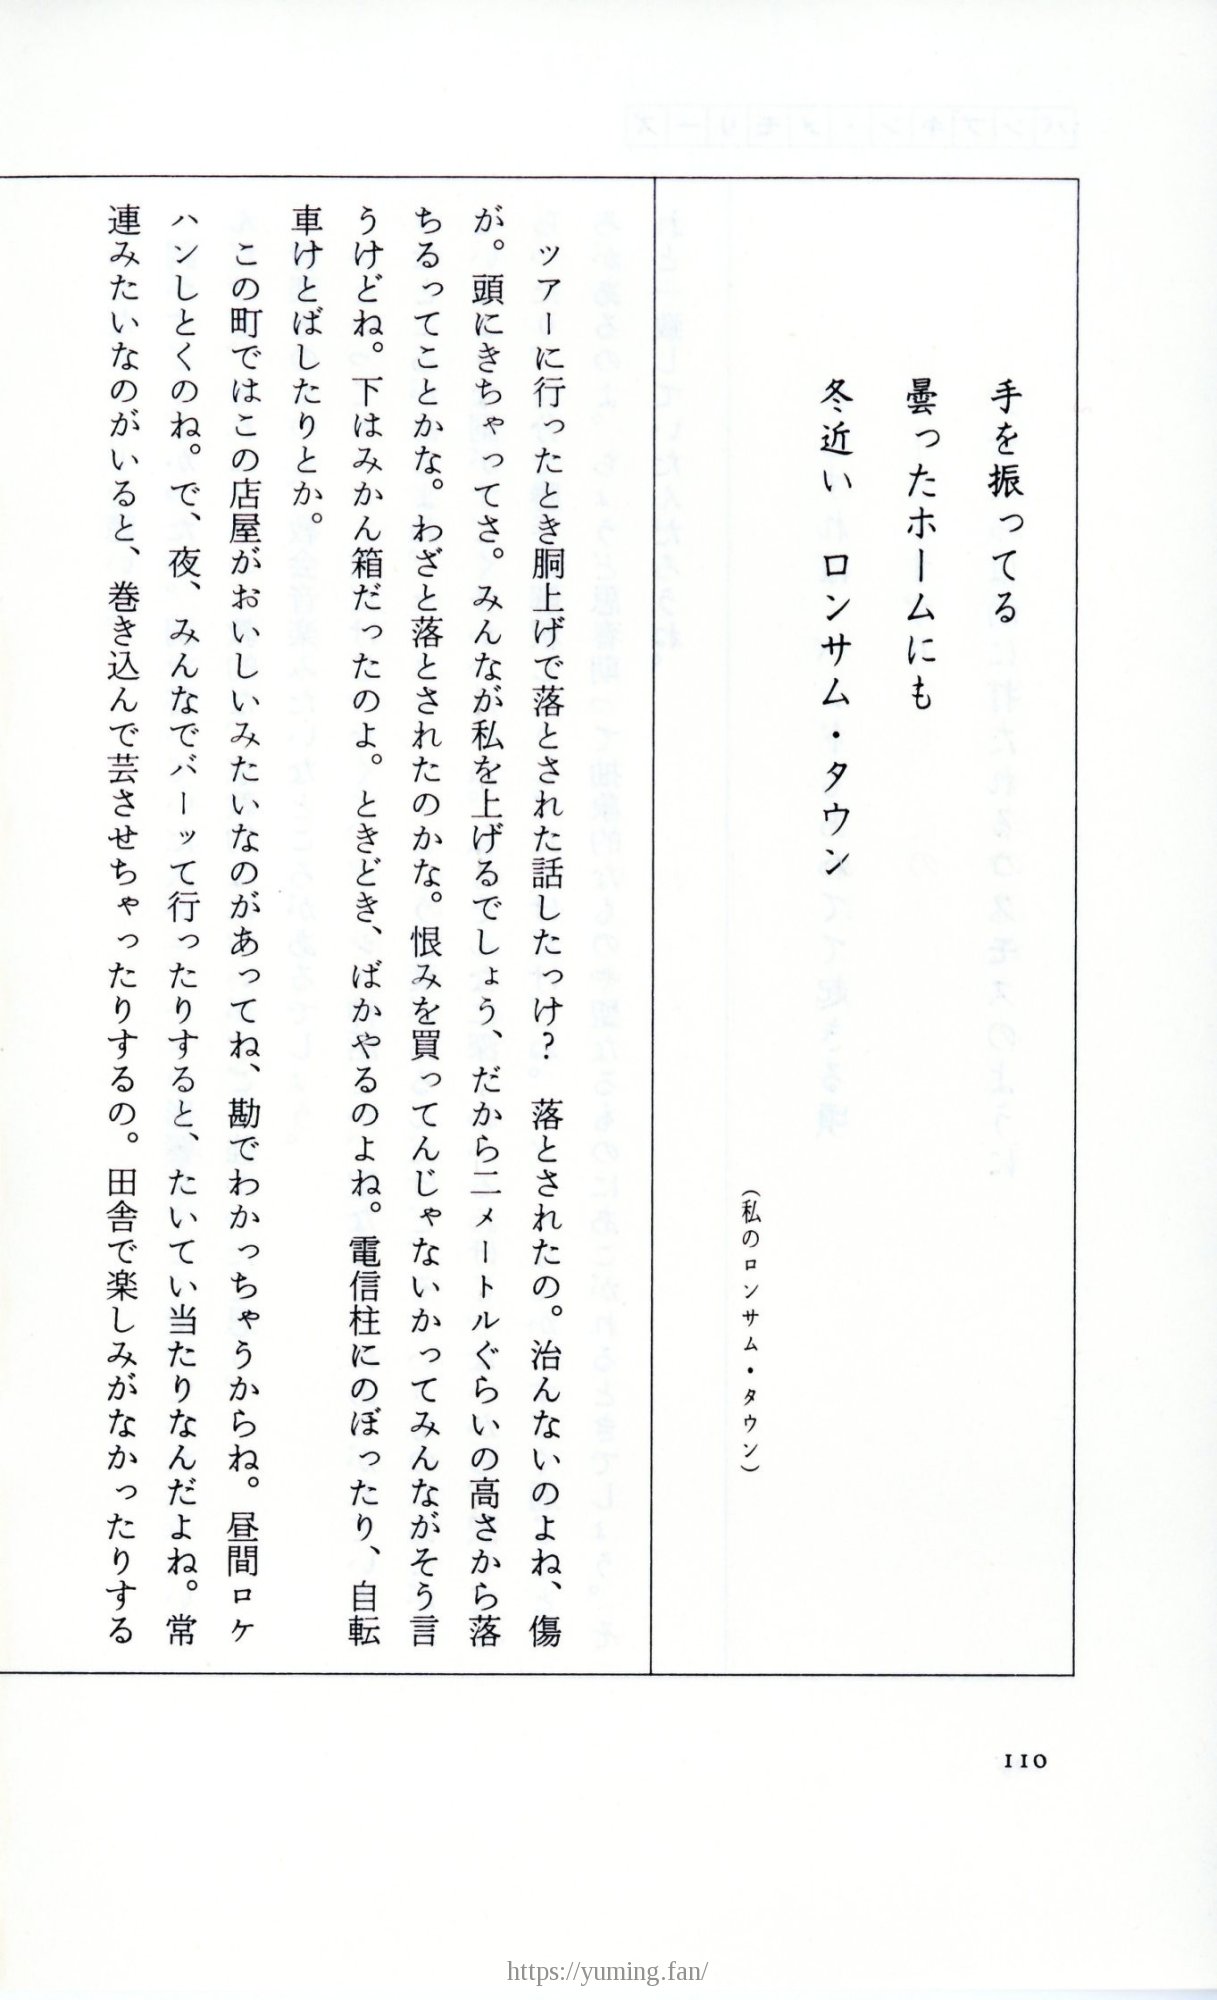 手を振ってる
曇ったホームにも
冬近い ロンサム・タウン
(私のロンサム・タウン)
ツアーに行ったとき胴上げで落とされた話したっけ? 落とされたの。治んないのよね、傷
が。頭にきちゃってさ。みんなが私を上げるでしょう、だから二メートルぐらいの高さから落
ちるってことかな。わざと落とされたのかな。恨みを買ってんじゃないかってみんながそう言
うけどね。下はみかん箱だったのよ。ときどき、ばかやるのよね。電信柱にのぼったり、自転
車けとばしたりとか。
この町ではこの店屋がおいしいみたいなのがあってね、勘でわかっちゃうからね。昼間ロケ
ハンしとくのね。で、夜、みんなでバーッて行ったりすると、たいてい当たりなんだよね。常
連みたいなのがいると、巻き込んで芸させちゃったりするの。田舎で楽しみがなかったりする
110
https://yuming.fan/